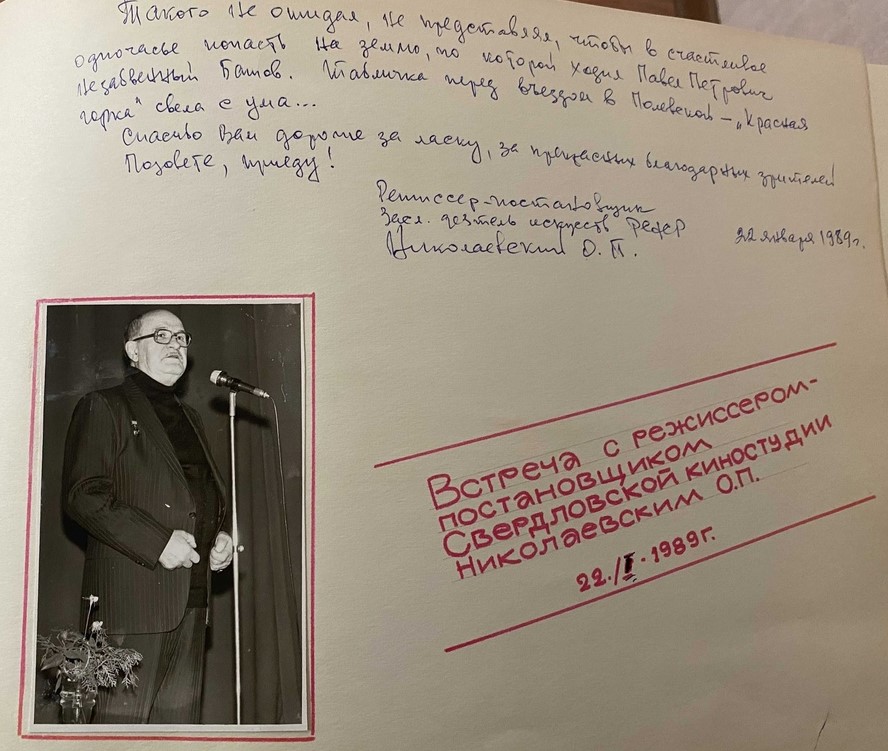 Такого не ожидал, не представлял, чтобы в счастливое
одночасье попасть на землю, по которой ходил Павел Петрович
незабвенный Бажов. Табличка перед въездом в Полевской – „Красная
горка“ свела с ума...
Спасибо Вам дорогие за ласку, за прекрасных благодарных зрителей
Позовете, приеду!
Режиссер-постановщик
Засл. деятель искусств РСФСР
Николаевский О. П.
22 января 1989г.
Встреча с режиссером-
постановщиком
Свердловской киностудии
Николаевским О.П.
22./I.1989г.